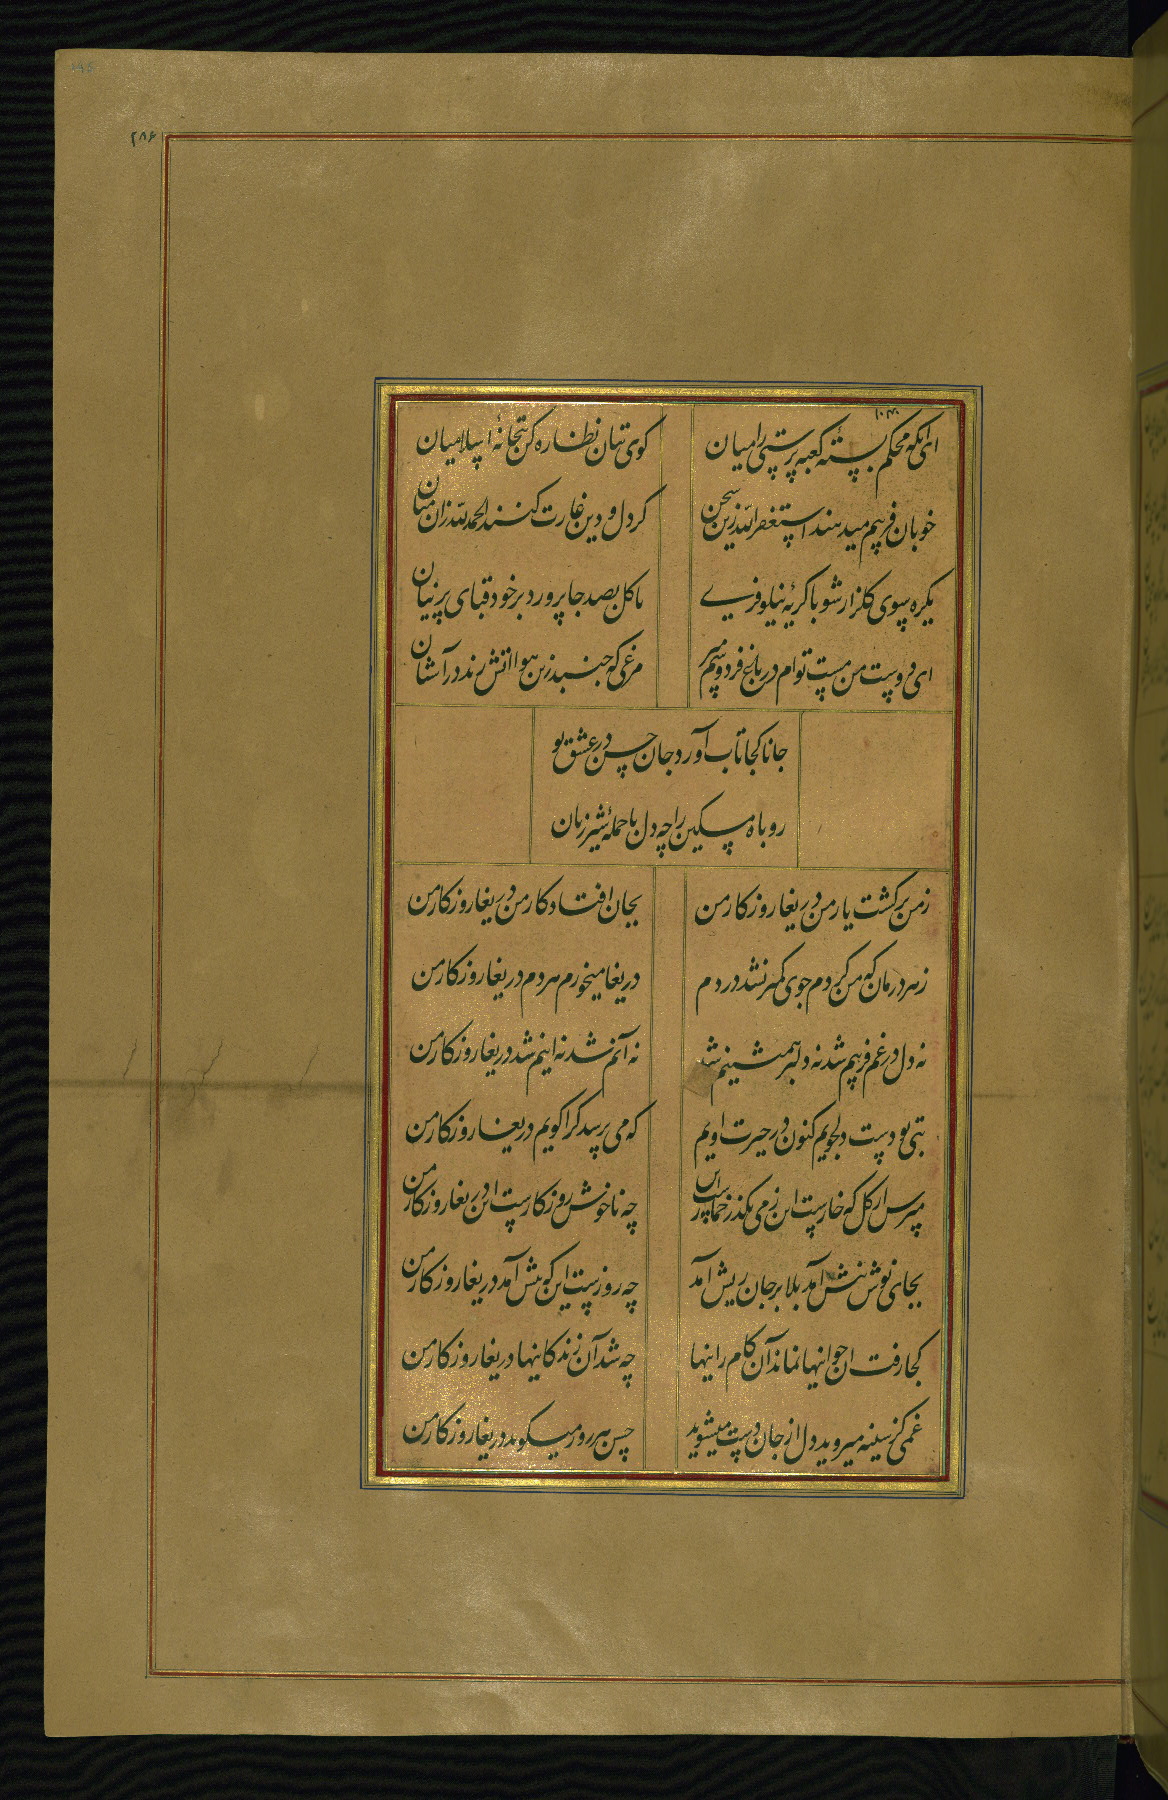 ۲۸۶
ای آنکه محکم بستهٔ کعبه پرستی را میان کوی بتان نظاره کن بتخانهٔ اسلامیان
خوبان فریبم میدهند استغفر الله زین سخن کر دل و دین غارت کنند الحمد لله زان میان
یکره بسوی کلزار شو با کریهٔ نیلوفری تا کل بصد جا پرورد بر خود قبای پرنیان
ای دوست من مست توام در باغ فردوسم مبر مرغی که جنبد زین هوا اتش زند در آشیان
جانا کجا تاب آورد جان حسن در عشق تو
روباه مسکین را چه دل با حملهٔ شیر ژیان
ز من برکشت یار من دریغا روزکار من بجان افتاد کار من دریغا روزکار من
ز هر درمان که من کردم جوی کمتر نشد دردم دریغا میخورم هر دم دریغا روزکار من
نه دل در غم فریبم شد نه دلبر همنشینم شد نه آنم شد نه اینم شد دریغا روزکار من
بتی بودست دلجویم کنون در حیرت اویم که می پرسد کرا کویم دریغا روزکار من
مپرس از کل که خارست این ز می بکذر خمارست این چه ناخوش روزکارست این دریغا روزکار من
بجای نوش نیش آمد بلا بر جان ریش آمد چه روزست این که پیش آمد دریغا روزکار من
کجا رفت ان جوانیها نماند آن کام رانیها چه شد آن زندکانیها دریغا روزکار من
غمی کز سینه میروید دل از جان دست میشوید حسن هر روز میکوید دریغا روزکار من